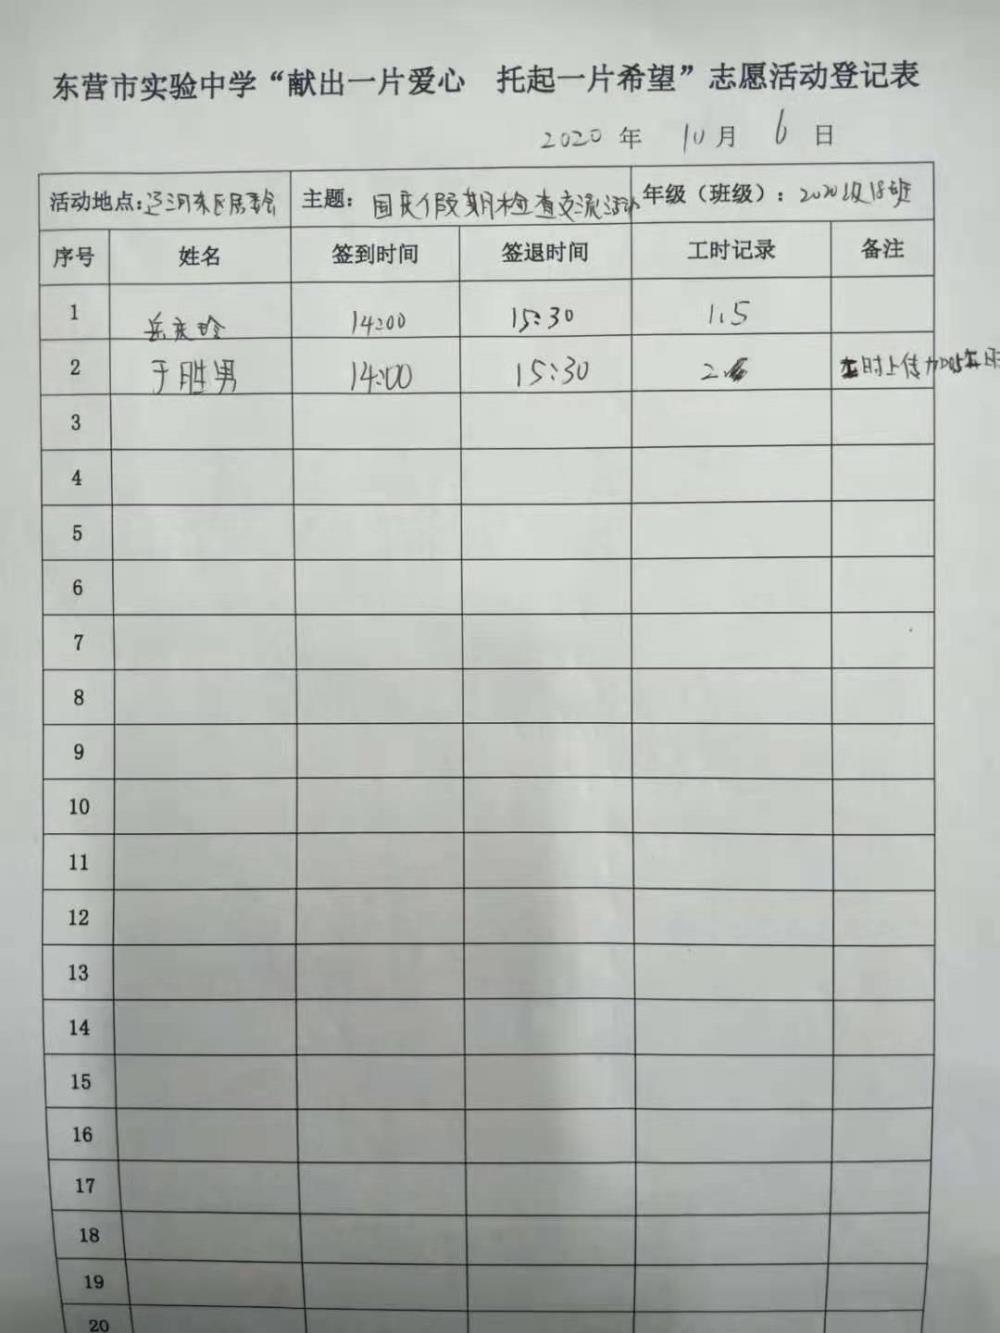 东营市实验中学“献出一片爱心 托起一片希望”志愿活动登记表
2020 年 10 月 6 日
活动地点: 辽河东区居委会 主题: 国庆假期检查交流活动 年级（班级）: 2020级18班
序号 姓名 签到时间 签退时间 工时记录 备注
1 岳庆玲 14:00 15:30 1.5
2 于胜男 14:00 15:30 2 工时上传加
3
4
5
6
7
8
9
10
11
12
13
14
15
16
17
18
19
20